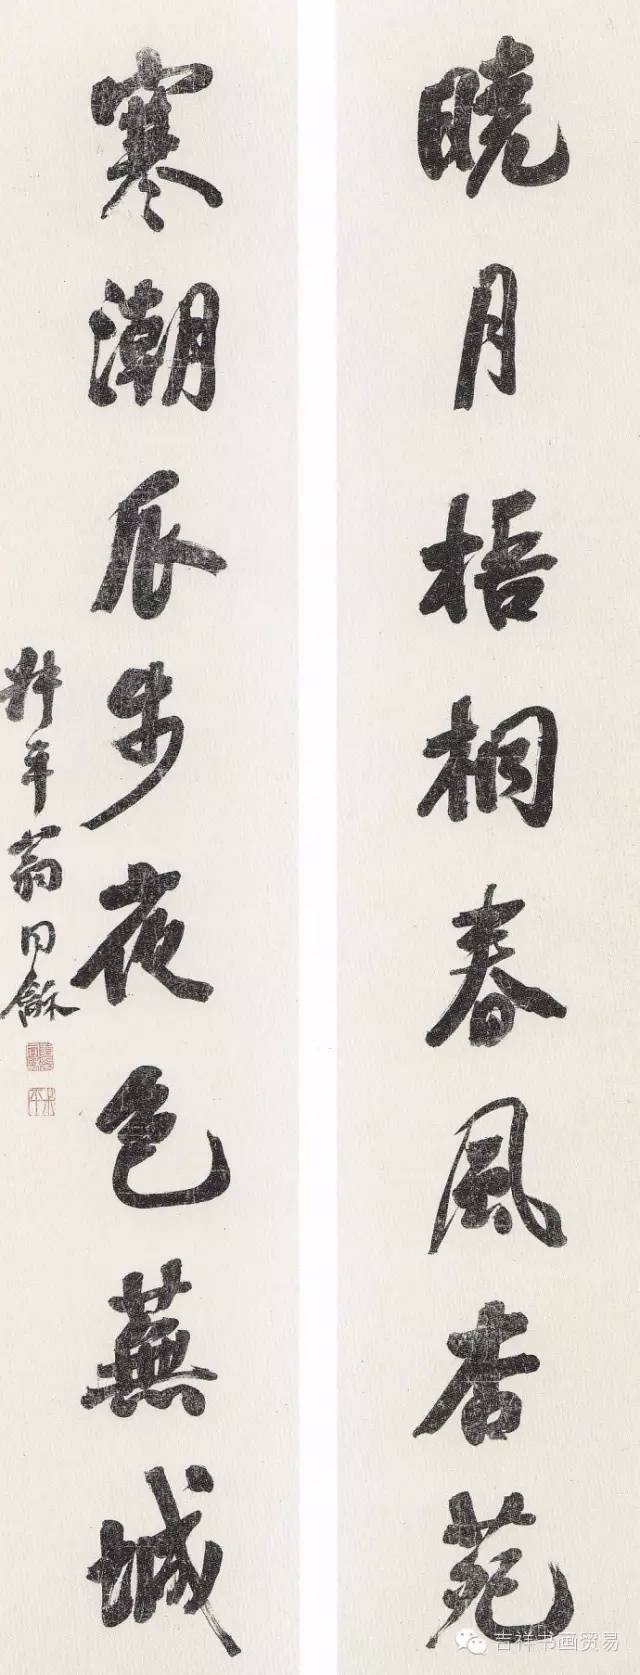 晓月梧桐春風杏苑
寒潮瓜步夜色蕪城
叔平翁同龢
吉祥书画贸易